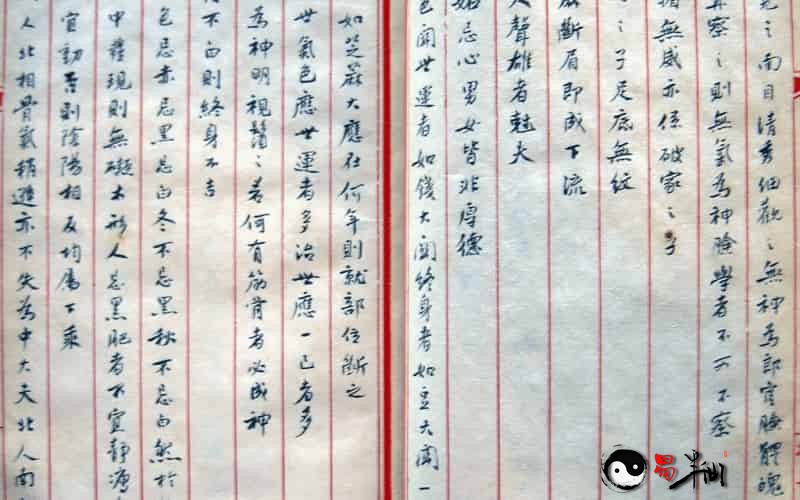 之南目清秀細觀之無神為郎官臉髒魄
察之則無氣為神臉學者不可不察
無威亦係破家之子
之子足底無紋
斷眉即成下流
聲雄者剋夫
忌心男女皆非厚德
色闊世運者如錢大闊終身者如豆大闊一
如芝蔴大應在何年則就部位斷之
世氣色應世運者多治世應一己者多
為神明視醫之者何有筋骨者必成神
不白則終身不吉
色忌赤忌黑忌白冬不忌黑秋不忌白然於
中獲現則無礙木形人忌黑肥者不宜靜瘦
宜動否則陰陽相反均屬下乘
人北相骨氣稍遜亦不失為中大夫北人南
易半仙